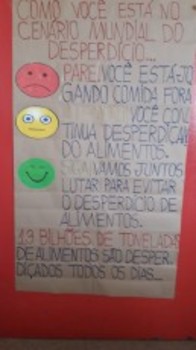 COMO VOCÊ ESTÁ NO
CENÁRIO MUNDIAL DO
DESPERDÍCIO...
PARE! VOCÊ ESTÁ JO
GANDO COMIDA FORA
VOCÊ CON
TINUA DESPERDIÇAN
DO ALIMENTOS.
VAMOS JUNTOS
LUTAR PARA EVITAR
O DESPERDÍCIO DE
ALIMENTOS.
1.3 BILHÕES DE TONELADAS
DE ALIMENTOS SÃO DESPER
DIÇADOS TODOS OS DIAS...